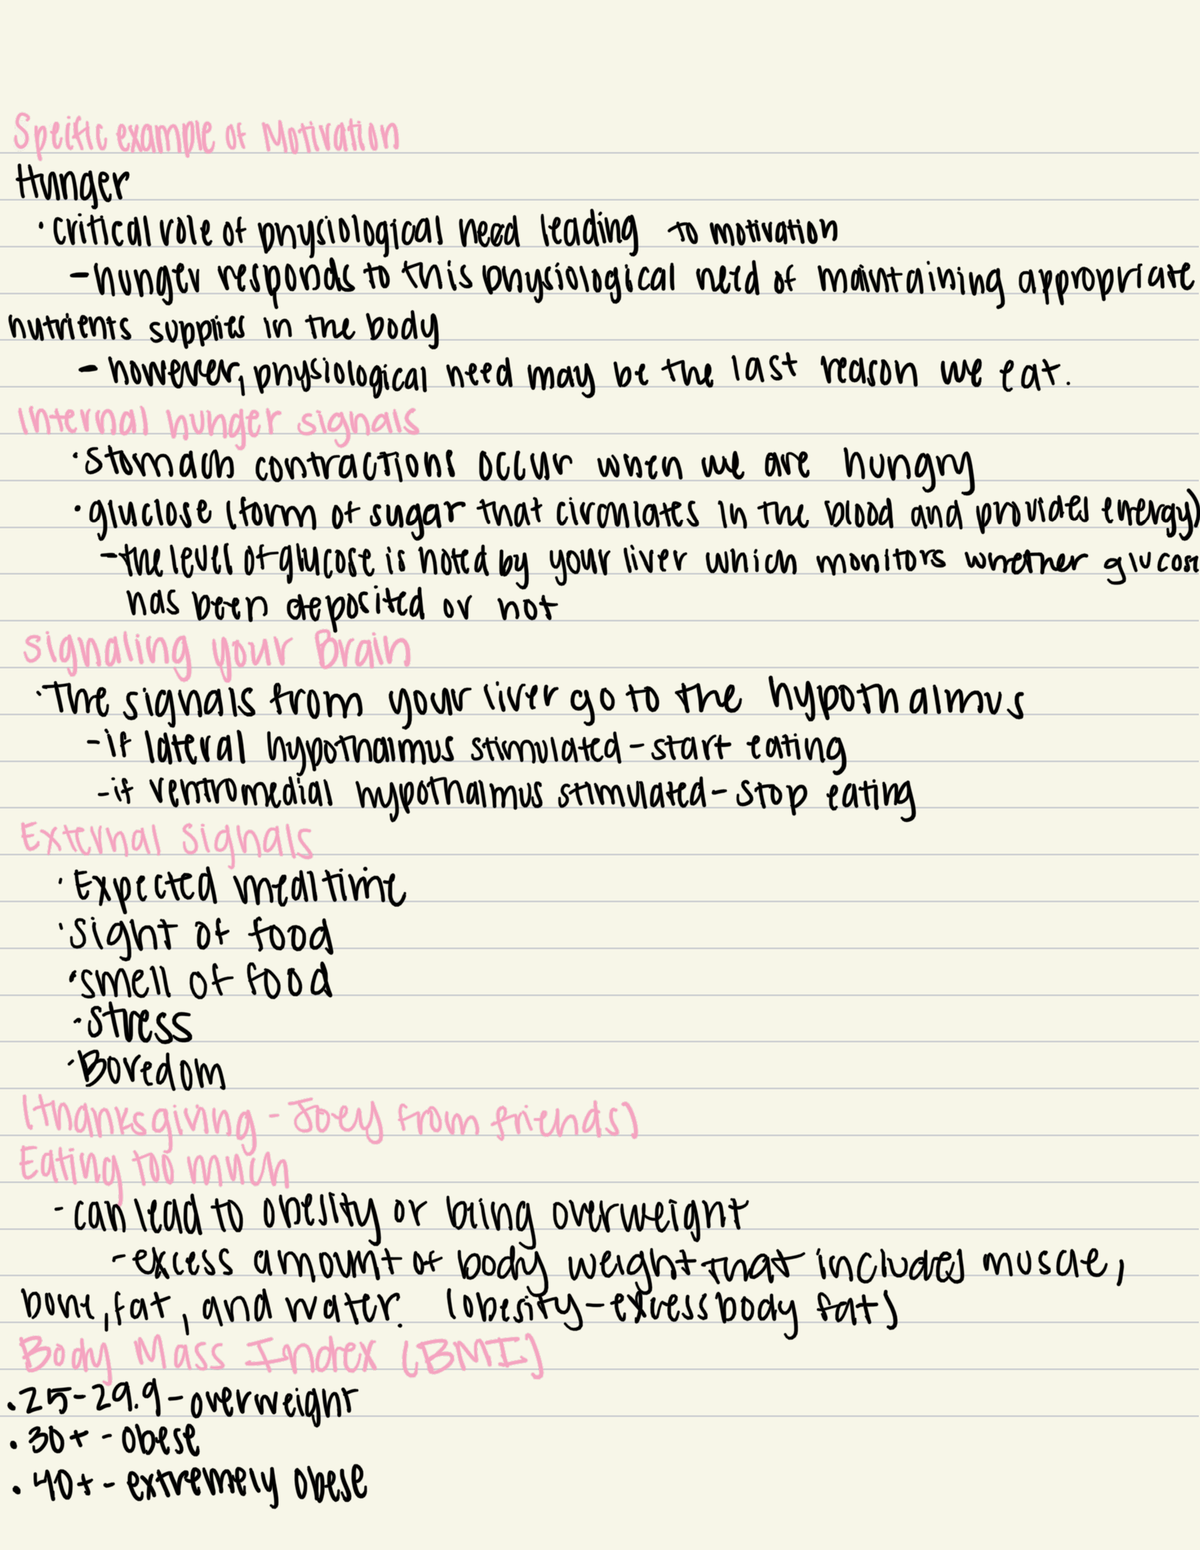 Speific example of Motivation
Hunger
· critical role of physiological need leading to motivation
- hunger responds to this physiological need of maintaining appropriate
nutrients supplies in the body
- however, physiological need may be the last reason we eat.
Internal hunger signals
· stomach contractions occur when we are hungry
· gluclose (form of sugar that circulates in the blood and provides energy)
- the level of glucose is noted by your liver which monitors whether glucose
has been deposited or not
signaling your Brain
· The signals from your liver go to the hypothalmus
- if lateral hypothalmus stimulated - start eating
- if ventromedial hypothalmus stimulated - stop eating
External Signals
· Expected mealtime
· sight of food
· smell of food
· stress
· Boredom
(thanksgiving - Joey from friends)
Eating too much
- can lead to obesity or being overweight
- excess amount of body weight that includes muscle,
bone, fat, and water. (obesity - excess body fat)
Body Mass Index (BMI)
· 25-29.9 - overweight
· 30+ - obese
· 40+ - extremely obese